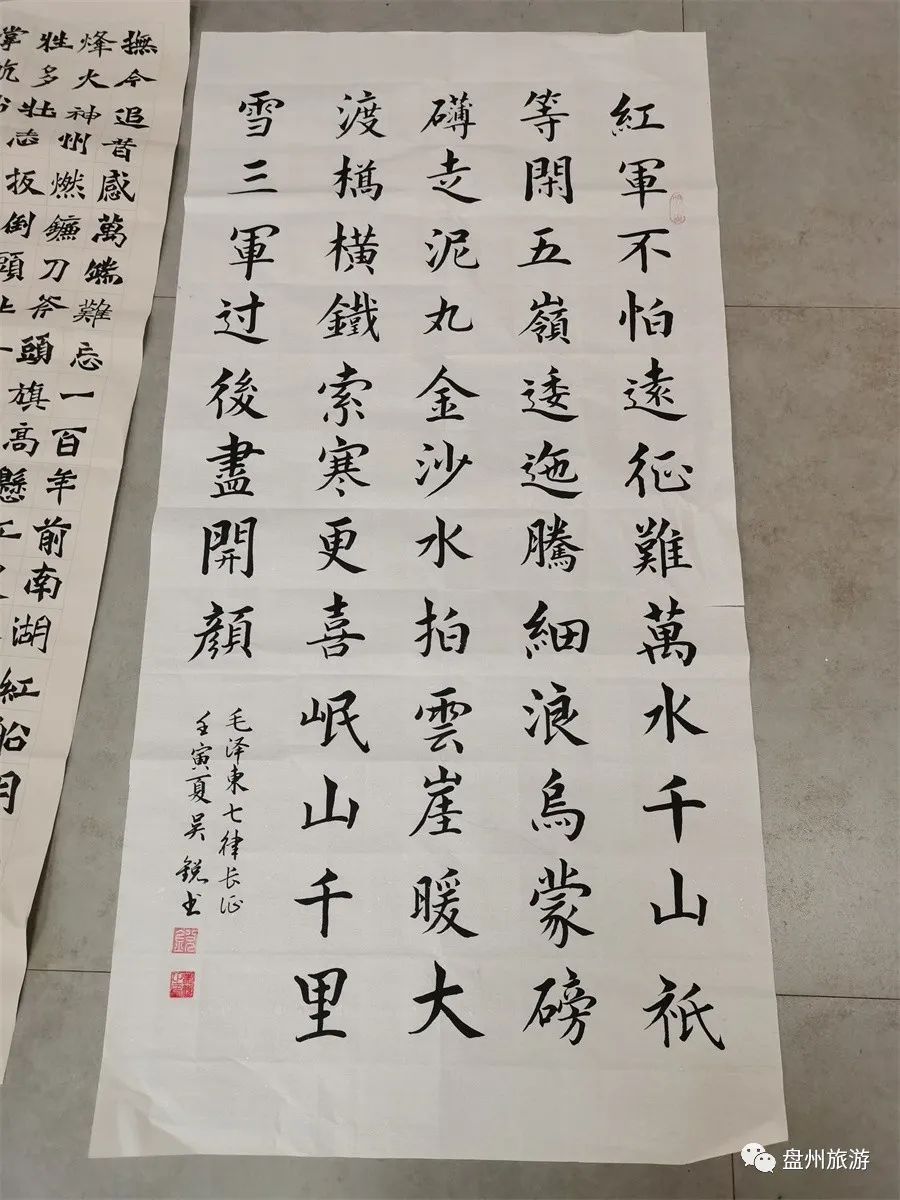 紅軍不怕遠征難萬水千山祇
等閑五嶺逶迤騰細浪烏蒙磅
礴走泥丸金沙水拍雲崖暖大
渡橋橫鐵索寒更喜岷山千里
雪三軍过後盡開顏
毛泽東七律长征
壬寅夏吴銳书
撫今追昔感萬端難忘一百年前南湖紅船月
烽火神州燃鐮刀斧頭旗高懸工
牲多壯志扳倒頭上一
掌
盘州旅游